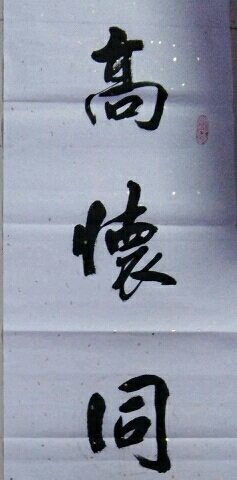 高懷同